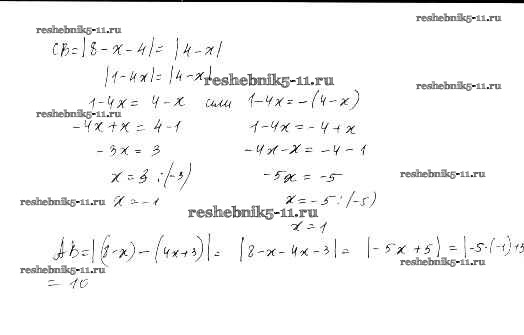 reshebnik5-11.ru
reshebnik5-11.ru
CB=|8-x-4|= |4-x|
|1-4x|=|4-x|
reshebnik5-11.ru
reshebnik5-11.ru
1-4x= 4-x или 1-4x=-(4-x)
reshebnik5-11.ru
-4x+x= 4-1 1-4x=-4+x
-3x= 3 -4x-x= -4-1
x= 3 :(-3) -5x= -5
reshebnik5-11.ru
reshebnik5-11.ru x=-1 x=-5:(-5)
reshebnik5-11.ru
x=1
AB=|(8-x)-(4x+3)|= |8-x-4x-3|= |-5x+5|=|-5·(-1)+5
reshebnik5-11.ru
reshebnik5-11.ru
= 10